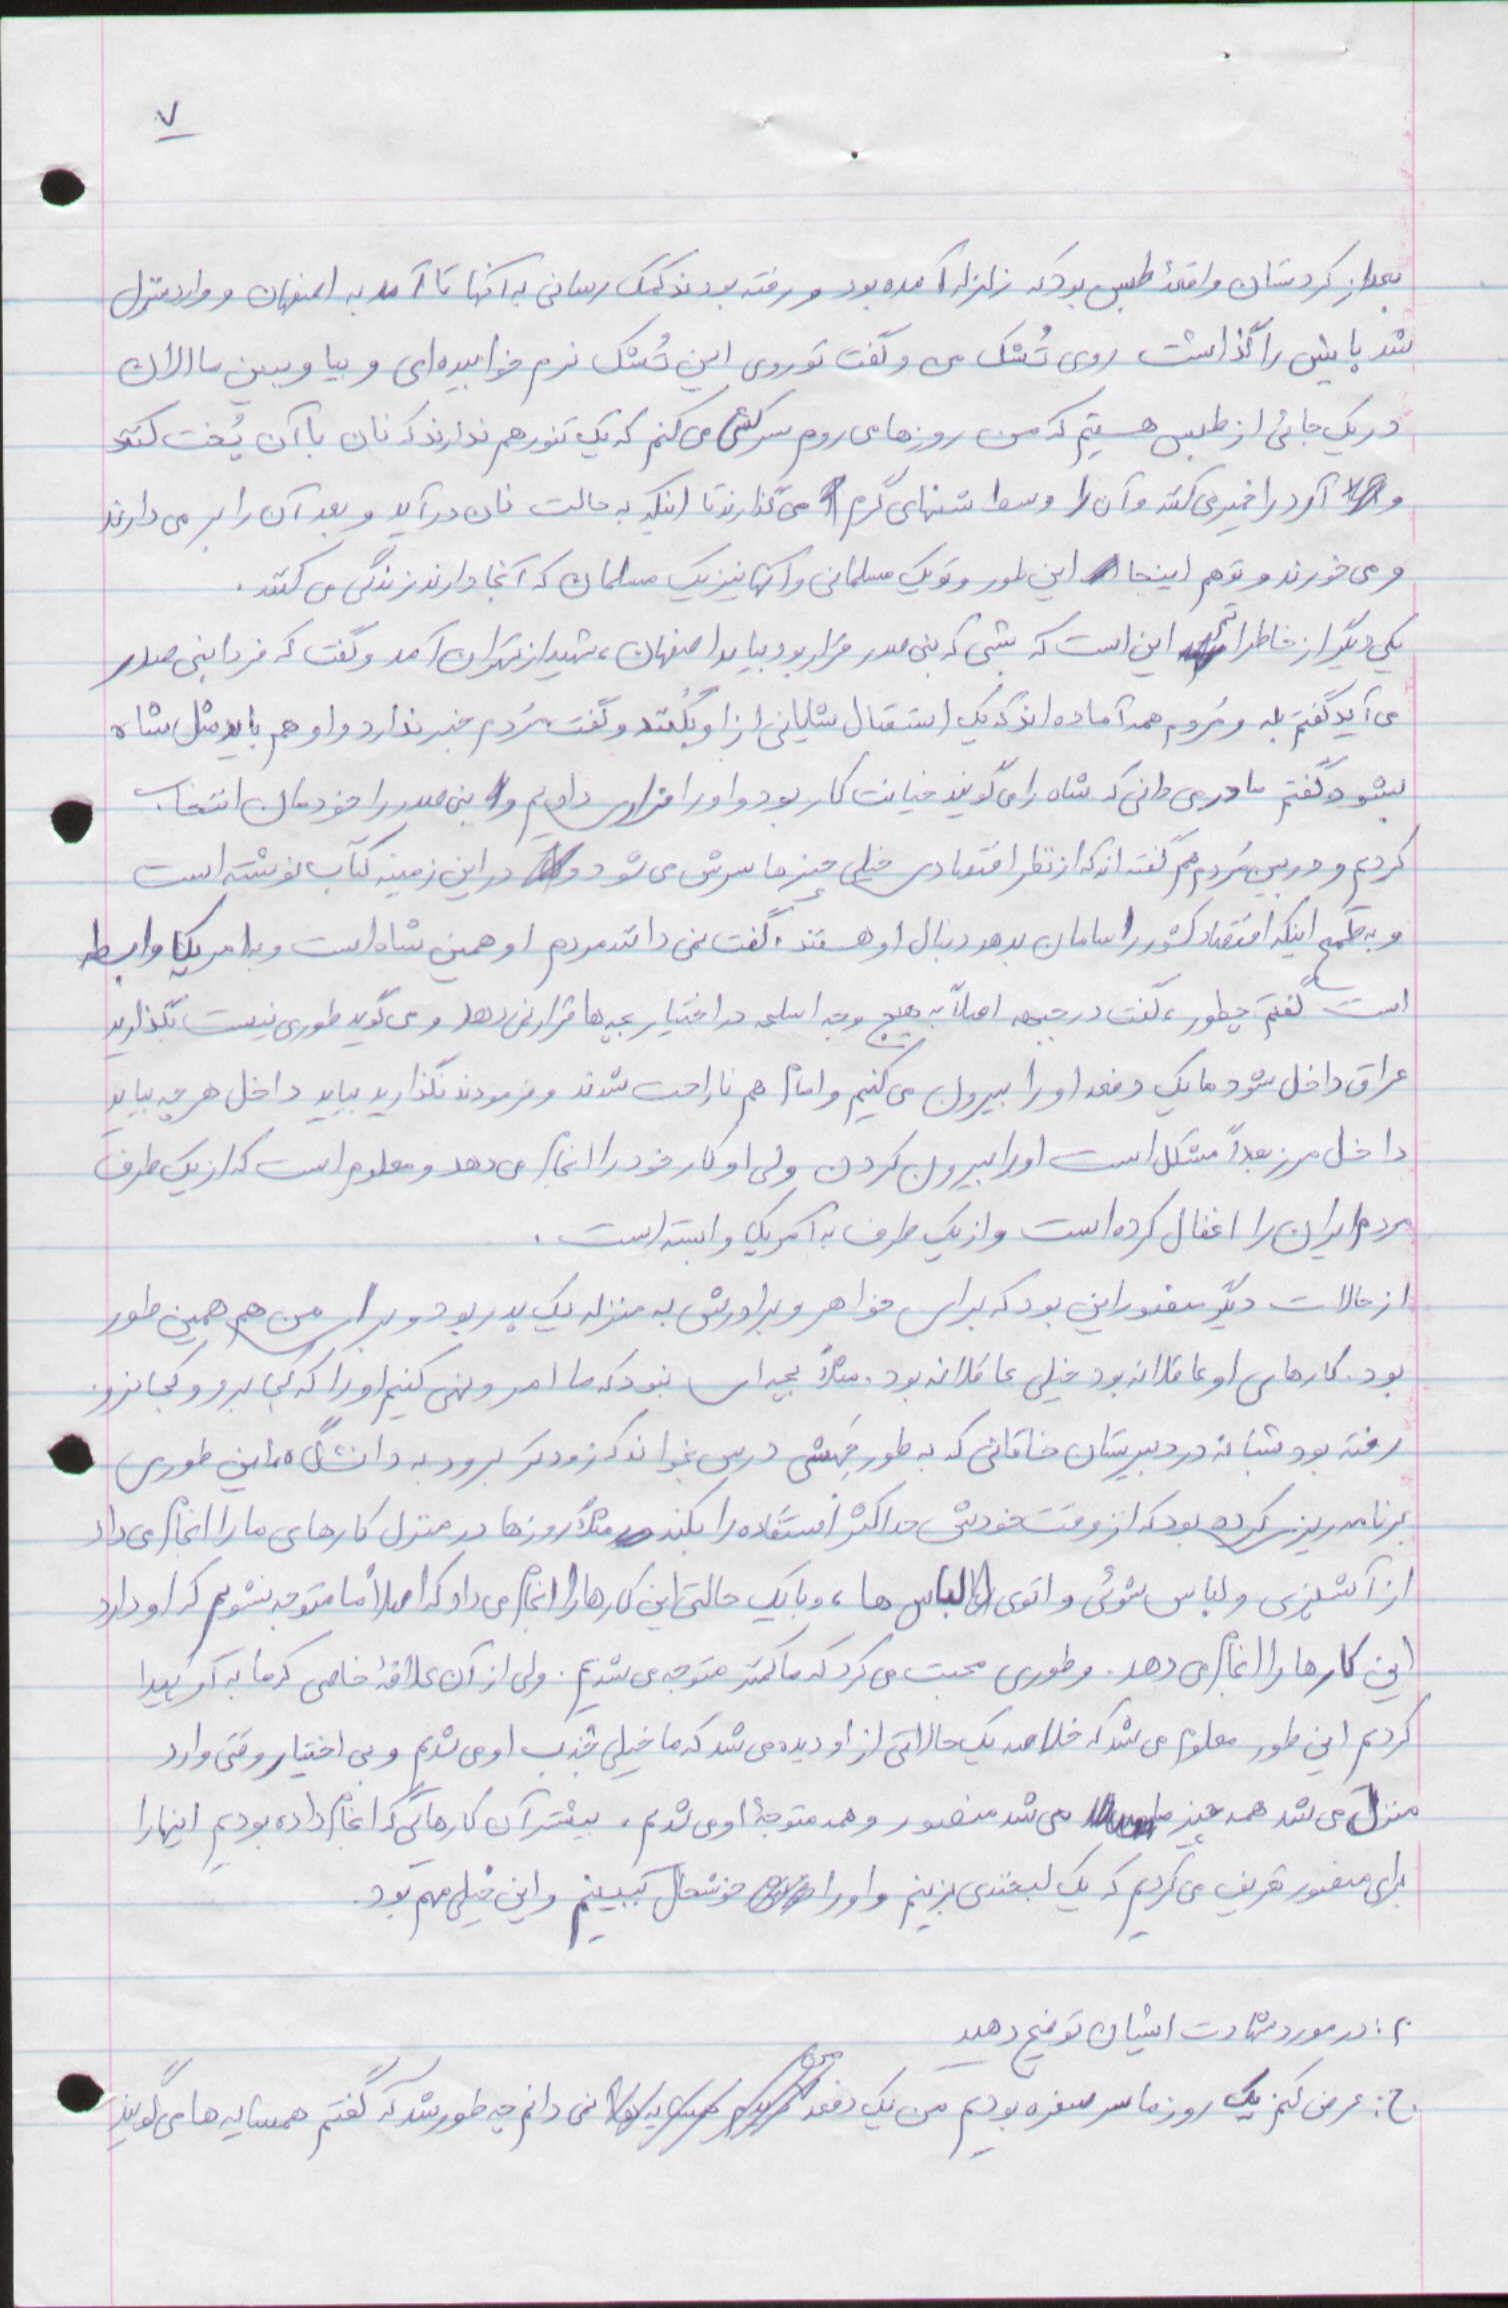 ۷
بعد از کردستان واقعهٔ طبس بود که زلزله آمده بود و رفته بودند کمک رسانی به آنها تا آمد به اصفهان و وارد منزل
شد پایش را گذاشت روی تُشک من و گفت تو روی این تُشک نرم خوابیده‌ای و بیا و ببین ما الان
در یک جائی از طبس هستیم که من روزها می روم سرکشی می کنم که یک تنور هم ندارند که نان با آن پُخت کنند
و آرد را خمیر می کنند و آن را وسط شنهای گرم می گذارند تا اینکه به حالت نان در آید و بعد آن را بر می دارند
و می خورند و تو هم اینجا این طور و تو یک مسلمانی و آنها نیز یک مسلمان که آنجا دارند زندگی می کنند.
یکی دیگر از خاطراتم این است که شبی که بنی صدر قرار بود بیاید اصفهان، شهید از تهران آمد و گفت که فردا بنی صدر
می آید گفتم بله و مَردم همه آماده اند که یک استقبال شایانی از او بکنند و گفت مَردم خبر ندارد و او هم باید مثل شاه
بشود گفتم مادر می دانی که شاه را می گویند خیانت کار بود و او را فراری دادیم و بنی صدر را خودمان انتخاب
کردیم و در بین مَردم هم گفته اند که از نظر اقتصادی خیلی چیزها سرش می شود و در این زمینه کتاب نوشته است
و به طَمَع اینکه اقتصاد کشور را سامان بدهد دنبال او هستند. گفت نمی دانند مردم او همین شاه است و با امریکا وابسطه
است گفتم چطور، گفت در جبهه اصلاً به هیچ وجه اسلحه در اختیار بچه ها قرار نمی دهد و می گوید طوری نیست بگذارید
عراق داخل شود ما یک دفعه او را بیرون می کنیم و امام هم ناراحت شدند و فرمودند نگذارید بیاید داخل هر چه بیاید
داخل مرز بعداً مشکل است او را بیرون کردن ولی او کار خود را انجام می دهد و معلوم است که از یک طرف
مردم ایران را اغفال کرده است و از یک طرف به آمریکا وابسته است.
از حالات دیگر منصور این بود که برای خواهر و برادرش به منزله یک پدر بود و برای من هم همین طور
بود. کارهای او عاقلانه بود خیلی عاقلانه بود. مثلاً بچه ای نبود که ما امر و نهی کنیم او را که کجا برو و کجا نرو.
رفته بود شبانه در دبیرستان خاقانی که به طور جَهِشی درس بخواند که زودتر برود به دانشگاه، این طوری
برنامه ریزی کرده بود که از وقت خودش حداکثر استفاده را بکند مثلاً روزها در منزل کارهای ما را انجام می داد
از آشپزی و لباس شوئی و اتوی لباس ها، و با یک حالتی این کارها را انجام می داد که اصلاً ما متوجه نشویم که او دارد
این کارها را انجام می دهد. و طوری محبت می کرد که ما کمتر متوجه می شدیم. ولی از آن علاقهٔ خاصی که ما به او پیدا
کردیم این طور معلوم می شد که خلاصه یک حالاتی از او دیده می شد که ما خیلی جَذب او می شدیم و بی اختیار وقتی وارد
منزل می شد همه چیز ما می شد منصور و همه متوجهٔ او می شدیم. بیشتر آن کارهایی که انجام داده بودیم اینها را
برای منصور تعریف می کردیم که یک لبخندی بزنیم و او را خوشحال ببینیم و این خیلی مهم بود.
: در مورد شهادت ایشان توضیح دهید
ج: عرض کنم یک روز ما سر سفره بودیم من یک دفعه نمی دانم چه طور شد که گفتم همسایه ها می گویند